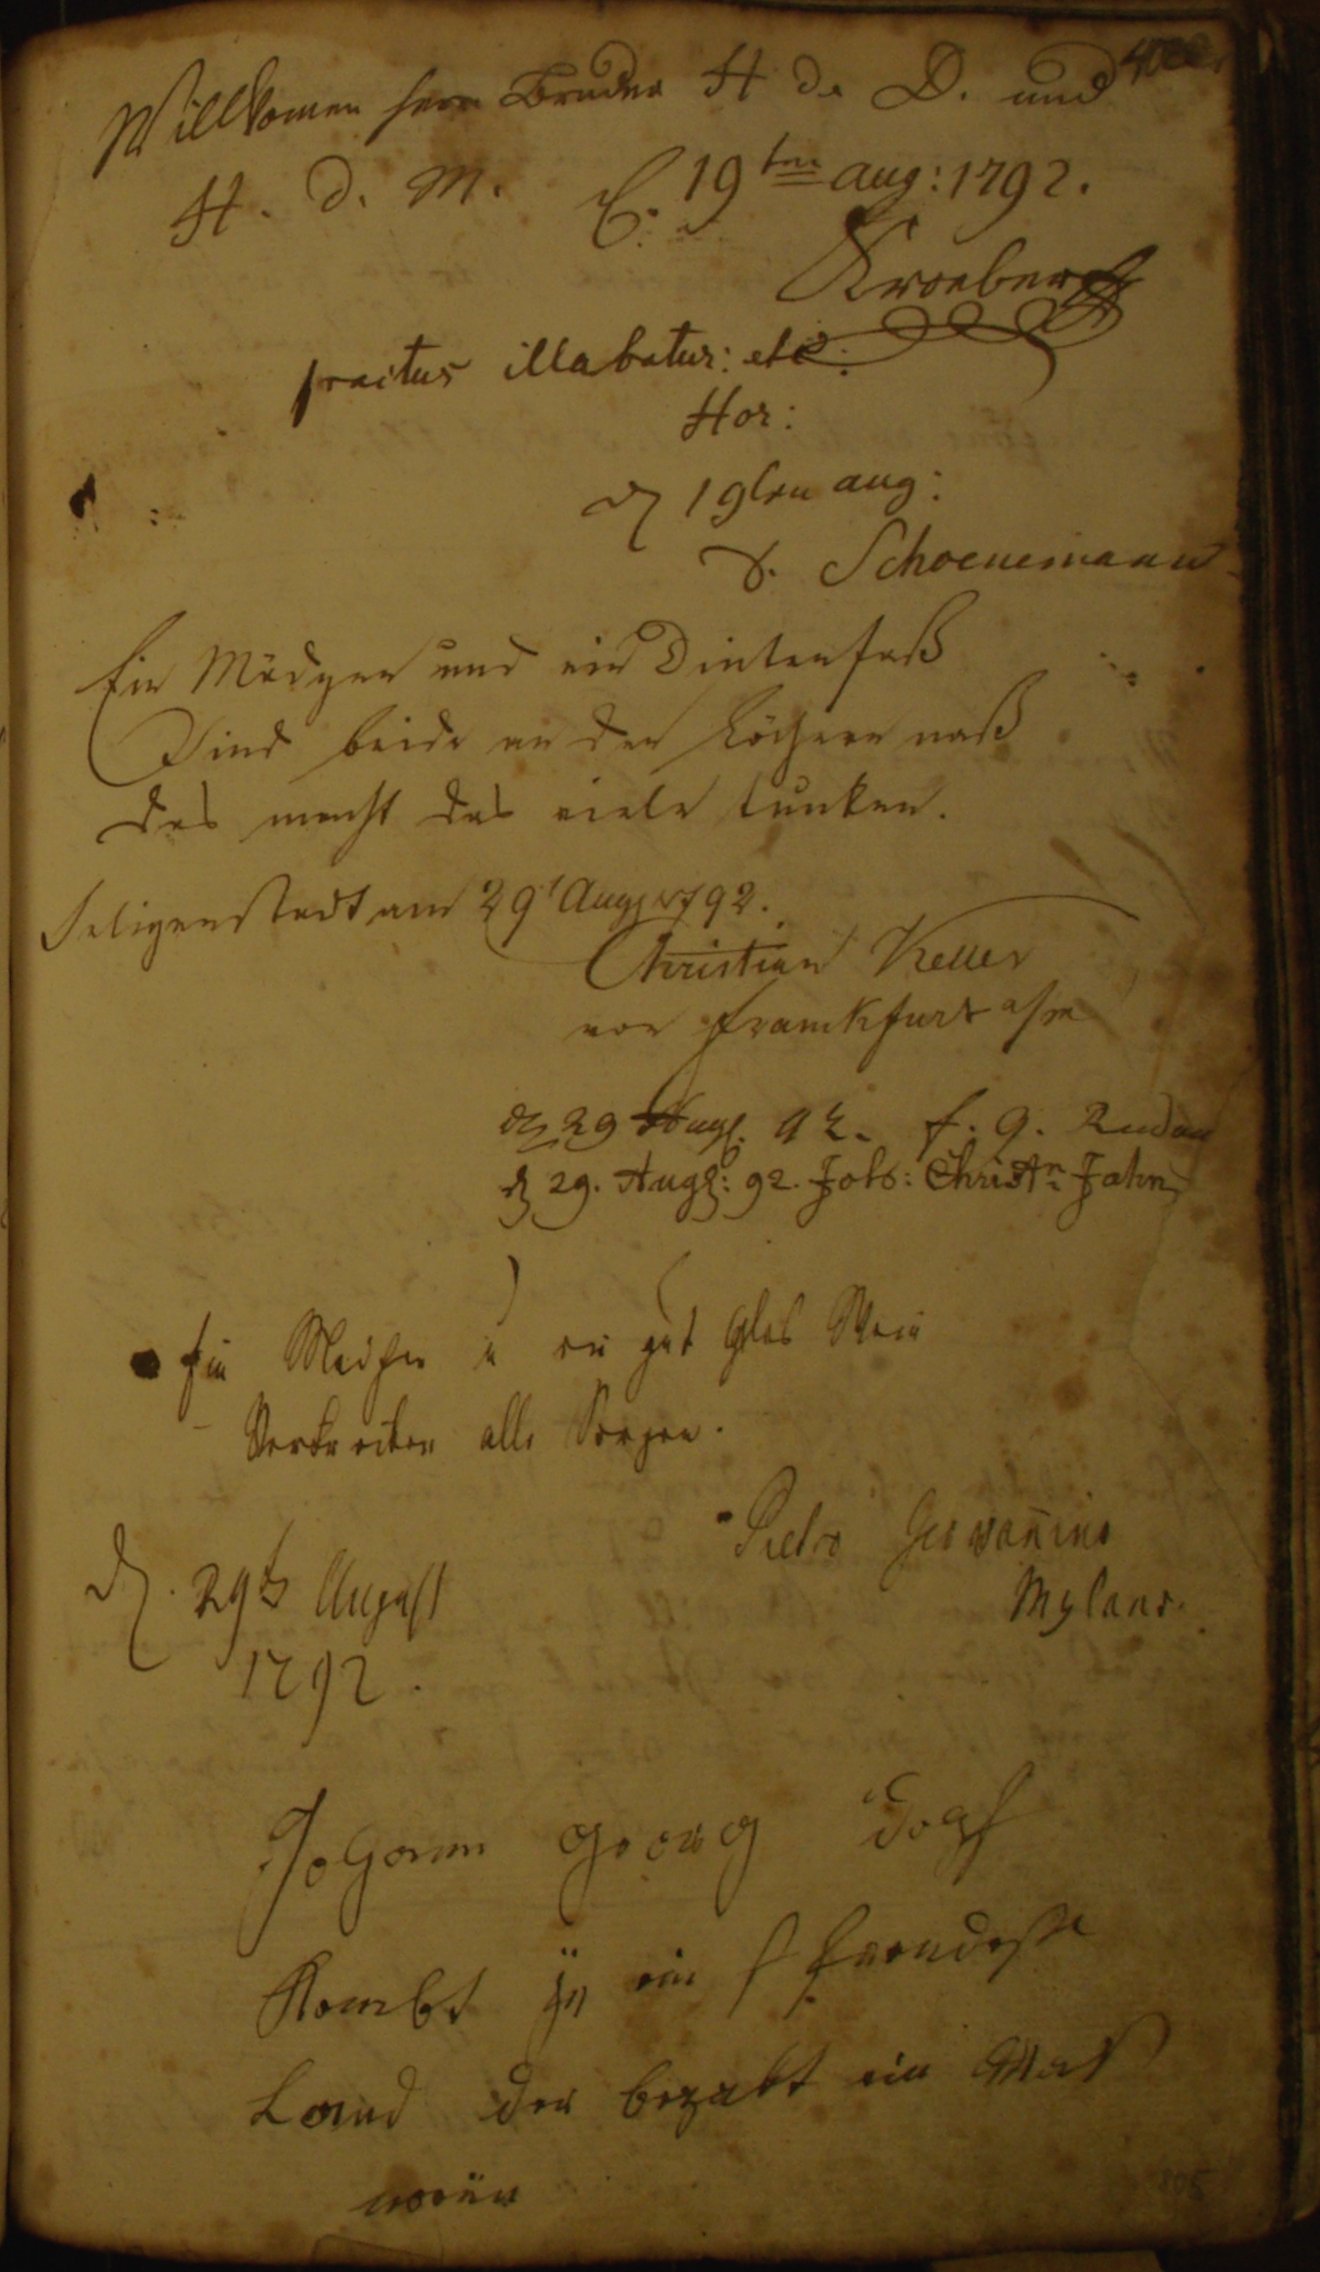 Willkomen herr Bruder H d. D. und
H. d. M. E. 19ten aug: 1792.
Kroeber
fractus illabatur: etc:
Hor:
d 19ten aug:
Schoenemann
Ein Mädgen und ein Dintenfaß
Sind beide an den Löchern naß
das macht das viele tunken.
Seligenstadt am 29t Aug 1792.
Christian Keller
von Franckfurt a/m
d 29 Aug. 92. F. G.
d 29. Aug: 92. Joh: Christn Jahn
Ein Mädchen u ein gut Glas Wein
Vertreiben alle Sorgen.
Pietro Giovanino
Mylano.
d. 29t August
1792.
Johann Georg
Kombt ein
Land der bezalt ein Maß